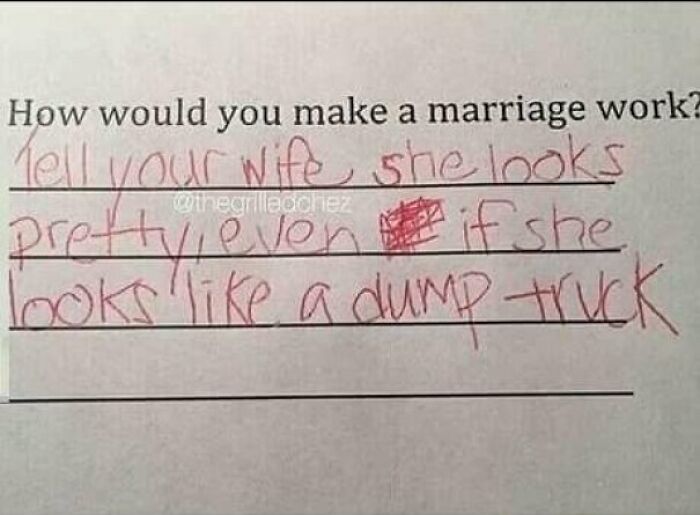 How would you make a marriage work?
Tell your wife she looks
@thegrilledchez
pretty, even if she
looks like a dump truck